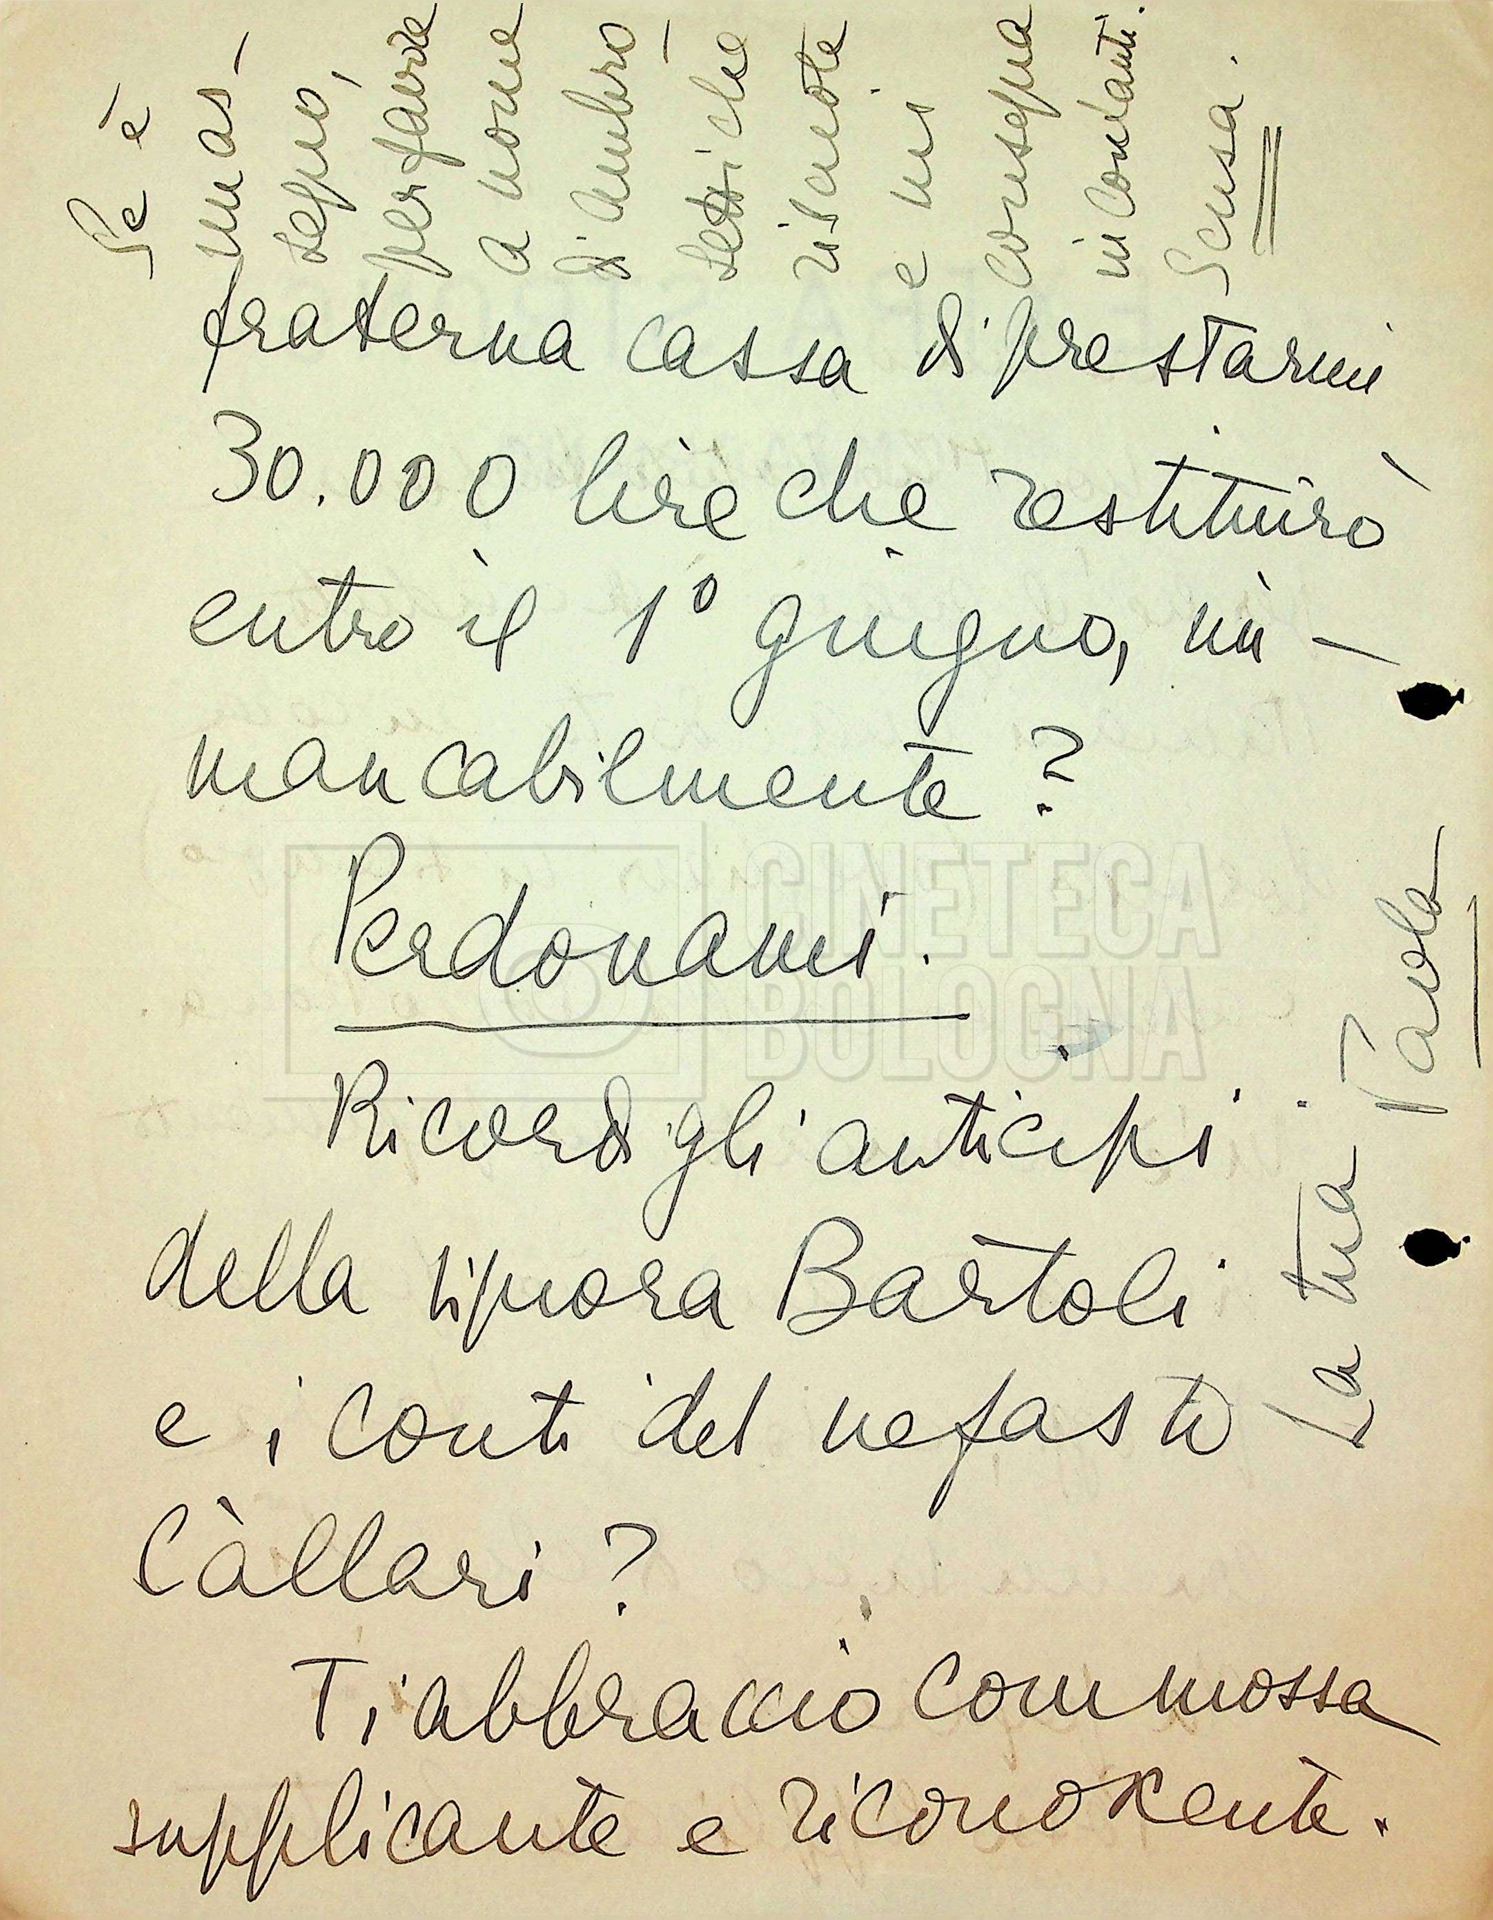 fraterna cassa di prestarmi
30.000 lire che restituirò
entro il 1° giugno, im-
mancabilmente?
Perdonami.
Ricordi gli anticipi
della signora Bartoli
e i conti del nefasto
Càllari?
Ti abbraccio commossa
supplicante e riconoscente.
La tua Paola
Se è
un as-
segno,
per favore
a nome
d'Ambro-
setti che
riscuote
e mi
consegna
in contanti.
Scusa.
CINETECA
BOLOGNA